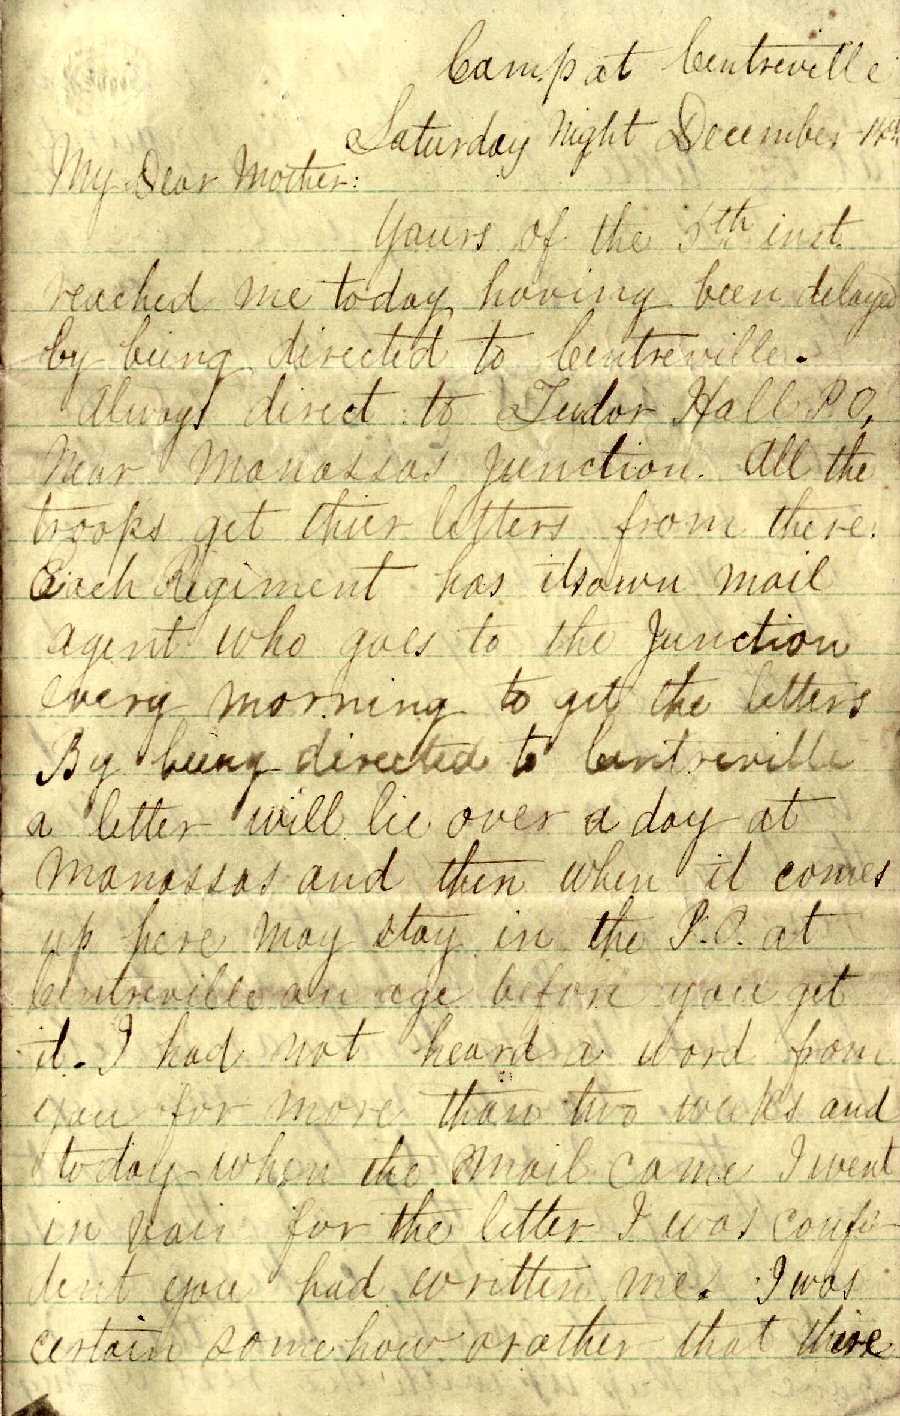 Camp at Centreville
Saturday Night December 14th
My Dear Mother:
Yours of the 5th inst.
reached me today having been delayed
by being directed to Centreville.
Always direct to Tudor Hall P.O,
Near Manassas Junction. All the
troops get thier letters from there.
Each Regiment has its own mail
agent who goes to the Junction
every morning to get the letters
By being directed to Centreville
a letter will lie over a day at
Manassas and then when it comes
up here may stay in the P.O. at
Centreville an age before you get
it. I had not heard a word from
you for more than two weeks and
today when the mail came I went
in vain for the letter I was confi-
dent you had written me. I was
certain somehow or other that there